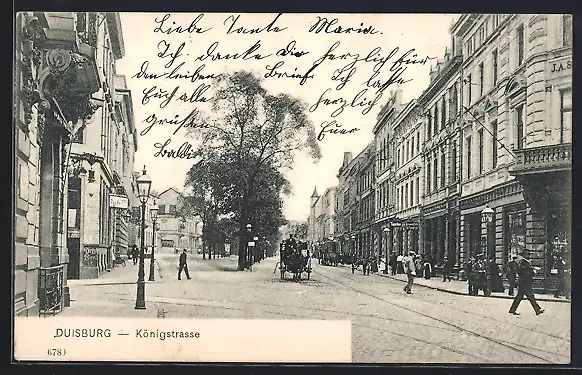 Liebe Tante Maria.
Ich danke dir herzlich für
den lieben Brief. Ich lasse
Euch alle herzlich
grüßen Euer
J.A.S
DUISBURG — Königstrasse
678)